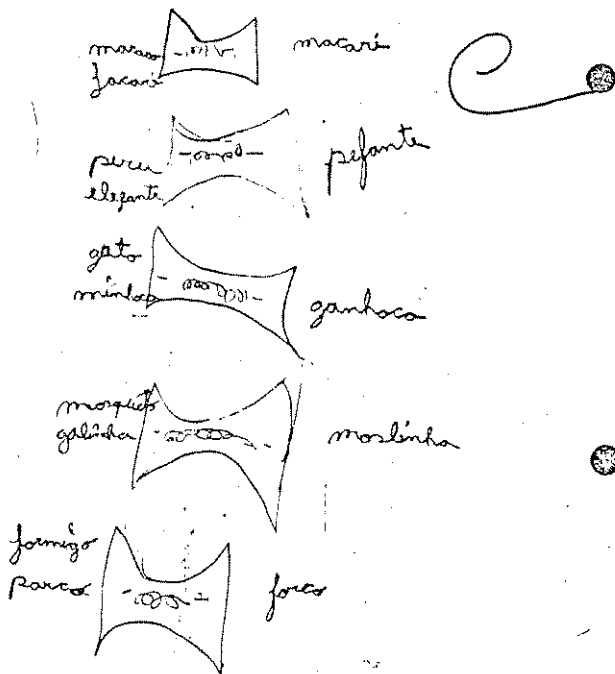 macaco
jacaré
macaré
peru
elefante
pefante
gato
minhoca
ganhoca
mosquito
galinha
moslinha
formiga
porco
forco